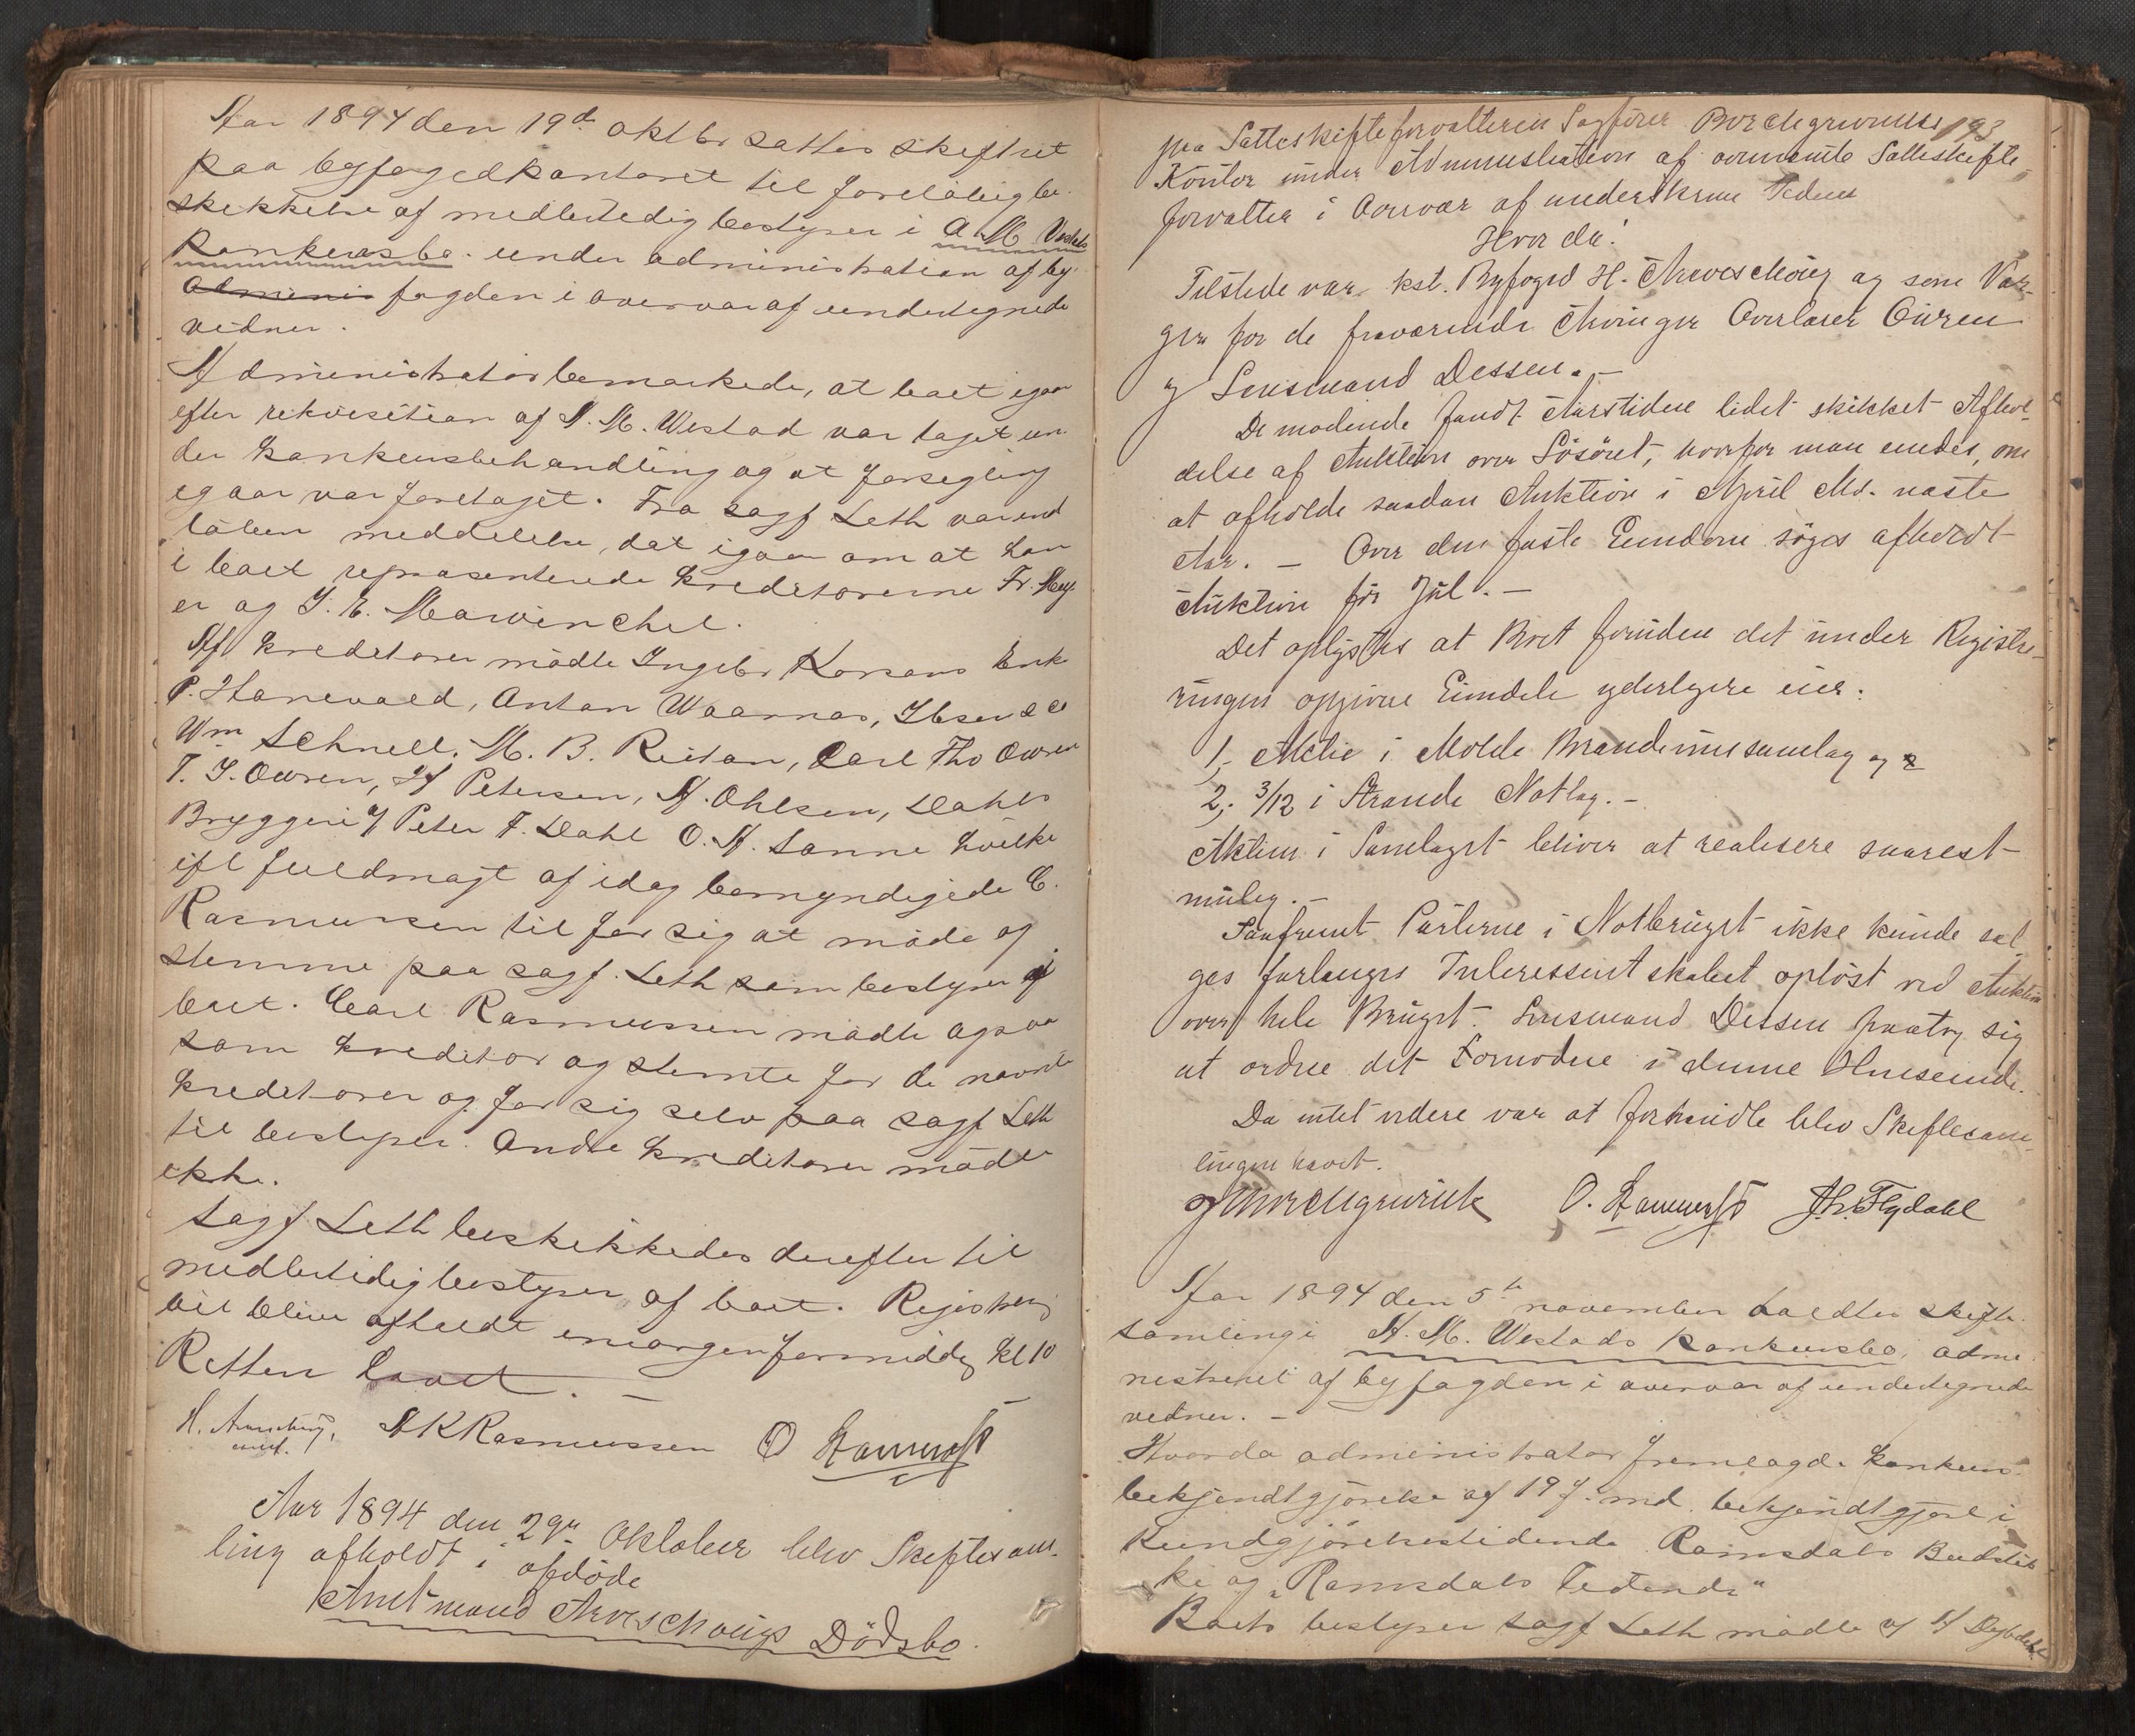 Aar 1894 den 19de oktbr sattes skifteret
paa byfogedkontoret til foreløbig be-
skikkelse af midlertidig bestyrer i A. M. Vestads
konkursbo under administration af by-
adminis fogden i overvær af undertegnede
vidner.
Administrator bemærkede, at boet igaar
efter rekvisition af A. M. Westad var taget un-
der konkursbehandling og at forsegling
igaar var foretaget. Fra sagf Leth var ind
løben meddelelse, dat igaar om at han
i boet repræsenterede kreditorerne Fr. Mey-
er og J. E. Marwinchel.
Af kreditorer mødte Ingebr Korsans Enke
P. Hanevold, Anton Waarnas, Ibsen & Co
Wm Schnell, M. B. Reitan, Carl Ths Owren
T. J. Owren, H Petersen, A. Ohlsen, Dahls
Bryggeri v/ Peter F. Dahl O. A. Sanne hvilke
ifl fuldmagt af idag bemyndigede C.
Rasmussen til for sig at møde og
stemme paa sagf. Leth som bestyrer i
boet. Carl Rasmussen mødte ogsaa
som kreditor og stemte for de nævnte
kreditorer og for sig selv paa sagf Leth
til bestyrer. Andre kreditorer mødte
ikke.
Sagf Leth beskikkedes derefter til
midlertidig bestyrer af boet. Registrering
vil blive afholdt imorgen formiddag kl 10
Retten hævet. —
H. Arveschoug, SK Rasmussen O
const.
Aar 1894 den 29de Oktober blev Skiftesam-
ling afholdt i afdøde
Amtmand Arveschougs Dødsbo.
193
paa Sætteskifteforvalteren Sagfører Borchgrevinks
Kontor under Administration af ovennævnte Sætteskifte-
forvalter i Overvær af underskrevne Vidner
Hvorda:
Tilstede var kst. Byfoged H. Arveschoug og som Vær-
ger for de fraværende Arvinger Overlærer Owren
og Lensmand Dessen. —
De mødende fandt Aarstiden lidet skikket Afhol-
delse af Auktion over Løsøret, hvorfor man enedes om
at afholde saadan Auktion i April Md. næste
Aar. — Over den faste Eiendom søges afholdt
Auktion før Jul. —
Det oplystes at Boet foruden det under Registre-
ringen opgivne Eiendele yderligere eier:
1, Aktie i Molde Brændevinssamlag og
2, 3/12 i Strande Notlag. —
Aktien i Samlaget bliver at realisere snarest
mulig. —
Saafremt Parterne i Notbruget ikke kunde sæl-
ges forlanges Interessentskabet opløst ved Auktion
over hele Bruget. Lensmand Dessen paatog sig
at ordne det Fornødne i denne Henseende.
Da intet videre var at forhandle blev Skiftesam-
lingen hævet.
Borchgrevink O. Jh. Flydahl
Aar 1894 den 5te november holdtes skifte-
samling i A. M. Westads konkursbo, admi-
nistreret af byfogden i overvær af undertegnede
vidner. —
Hvorda administrator fremlagde konkurs-
bekjendtgjørelse af 19 f. md. bekjendtgjort i
Kundgjørelsestidende Romsdals Budstik-
ke og „Romsdals Tidende“
Boets bestyrer sagf Leth mødte og